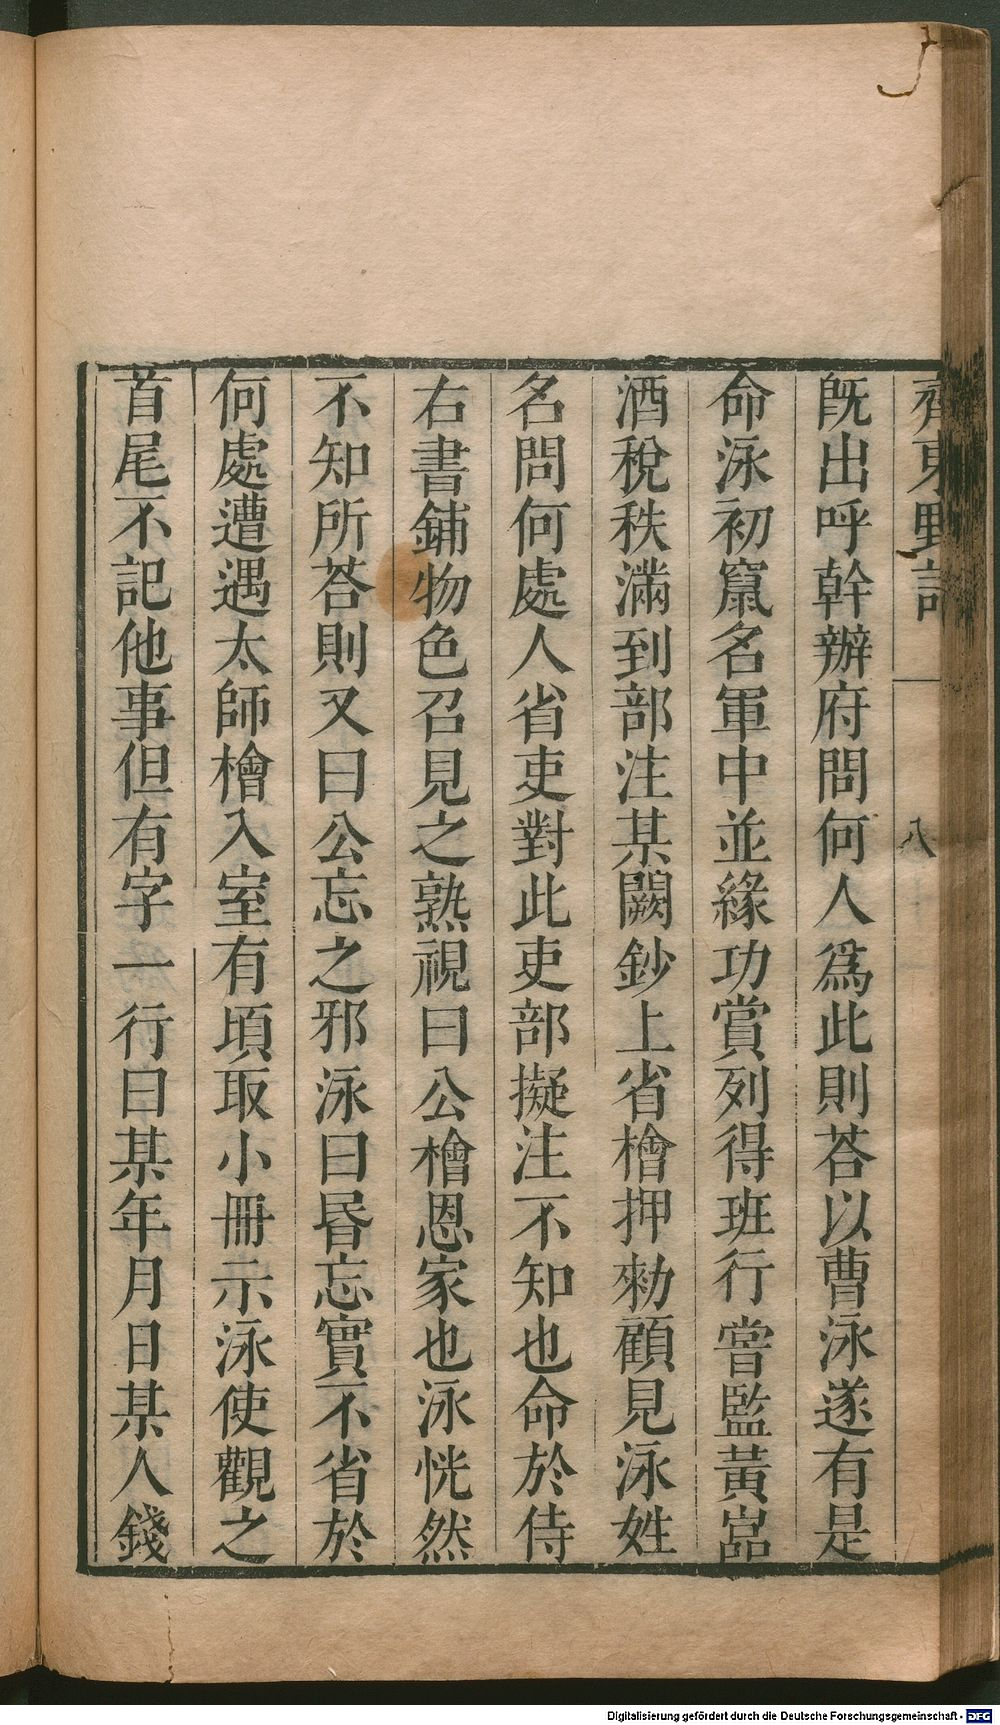 齊東野語
八
旣出呼幹辦府問何人爲此則荅以曹泳遂有是
命泳初竄名軍中並緣功賞列得班行嘗監黃嵓
酒稅秩滿到部注某闕鈔上省檜押勑顧見泳姓
名問何處人省吏對此吏部擬注不知也命於侍
右書鋪物色召見之熟視曰公檜恩家也泳恍然
不知所荅則又曰公忘之邪泳曰昬忘實不省於
何處遭遇太師檜入室有頃取小冊示泳使觀之
首尾不記他事但有字一行曰某年月日某人錢
Digitalisierung gefördert durch die Deutsche Forschungsgemeinschaft - DFG